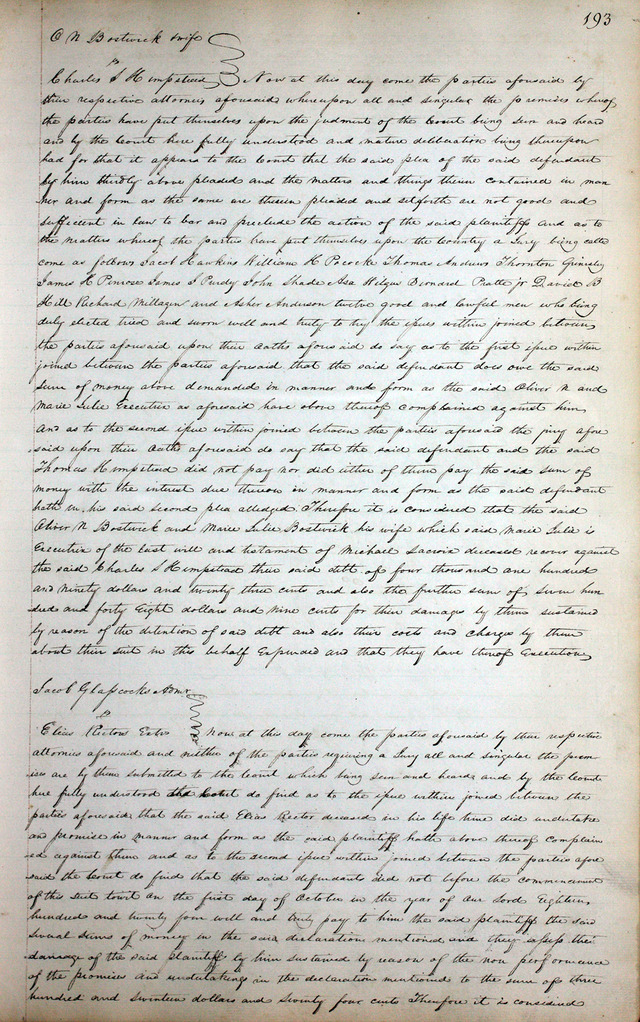 193
O N Bostwick & wife
vs
Charles S Hempstead Now at this day come the parties aforesaid by
their respective attornies aforesaid whereupon all and singular the premises whereof
the parties have put themselves upon the judgment of the Court being seen and heard
and by the Court here fully understood and mature deliberation being thereupon
had for that it appears to the Court that the said plea of the said defendant
by him thirdly above pleaded and the matters and things therein contained in man
ner and form as the same are therein pleaded and setforth are not good and
sufficient in law to bar and preclude the action of the said plaintiffs and as to
the matters whereof the parties have put themselves upon the Country a Jury being called
come as follows Jacob Hawkins William H Pocock Thomas Andrews Thornton Grimsley
James H Penrose James S Purdy John Shade Asa Wilgus Bernard Pratte jr David B
Hill Richard Milligan and Asher Anderson twelve good and lawful men who being
duly elected tried and sworn well and truly to try the issues within joined between
the parties aforesaid upon their Oaths aforesaid do say as to the first issue within
joined between the parties aforesaid that the said defendant does owe the said
sum of money above demanded in manner and form as the said Oliver N and
Marie Julie Executrix as aforesaid have above thereof complained against him
And as to the second issue within joined between the parties aforesaid the jury afore
said upon their Oaths aforesaid do say that the said defendant and the said
Thomas Hempstead did not pay nor did either of them pay the said sum of
money with the interest due thereon in manner and form as the said defendant
hath in his said second plea alledged Therefore it is considered that the said
Oliver N Bostwick and Marie Julie Bostwick his wife which said Marie Julie is
Executrix of the last will and testament of Michael Lacroix deceased recover against
the said Charles S Hempstead their said debt of four thousand one hundred
and ninety dollars and twenty three cents and also the further sum of seven hun
dred and forty Eight dollars and nine cents for their damages by them sustained
by reason of the detention of said debt and also their costs and charges by them
about their suit in this behalf Expended and that they have thereof Execution
Jacob Glasscocks Admr
vs
Elias Rectors Exters Now at this day come the parties aforesaid by their respective
attornies aforesaid and neither of the parties requiring a Jury all and singular the prem
ises are by them submitted to the Court which being seen and heard and by the Court
here fully understood the Court do find as to the issue within joined between the
parties aforesaid that the said Elias Rector deceased in his life time did undertake
and promise in manner and form as the said plaintiff hath above thereof complain
ed against them and as to the second issue within joined between the parties afore
said the Court do find that the said defendants did not before the commencement
of this suit towit on the first day of October in the year of our Lord Eighteen
hundred and twenty four well and truly pay to him the said plaintiff the said
several sums of money in the said declaration mentioned and they assess the
damage of the said plaintiff by him sustained by reason of the non performance
of the promises and undertakings in the declaration mentioned to the sum of three
hundred and seventeen dollars and seventy four cents Therefore it is considered